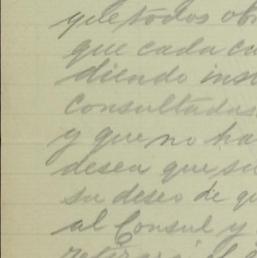 y de todos obr
que cada cu
diendo inst
consultadas
y que no ha
desea que su
su deseo de qu
al Consul y
retirará el